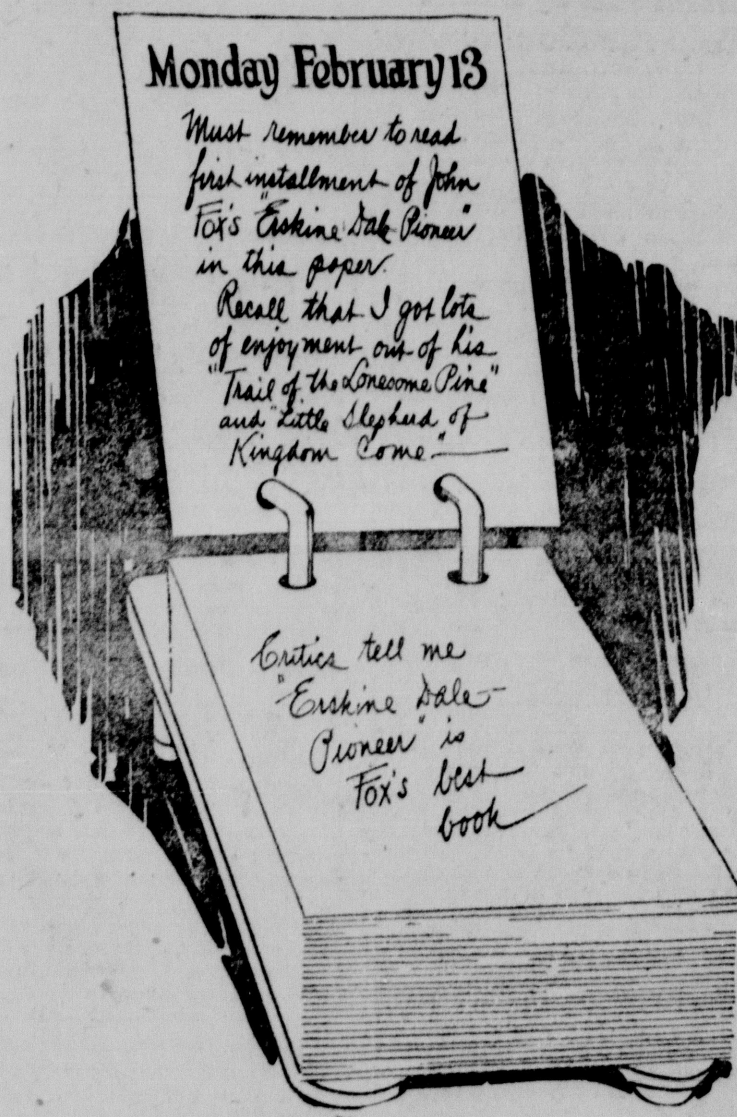 Monday February 13
Must remember to read
first installment of John
Fox's "Erskine Dale Pioneer"
in this paper.
Recall that I got lots
of enjoyment out of his
"Trail of the Lonesome Pine"
and "Little Shepherd of
Kingdom Come."—
Critics tell me
"Erskine Dale—
Pioneer" is
Fox's best
book—